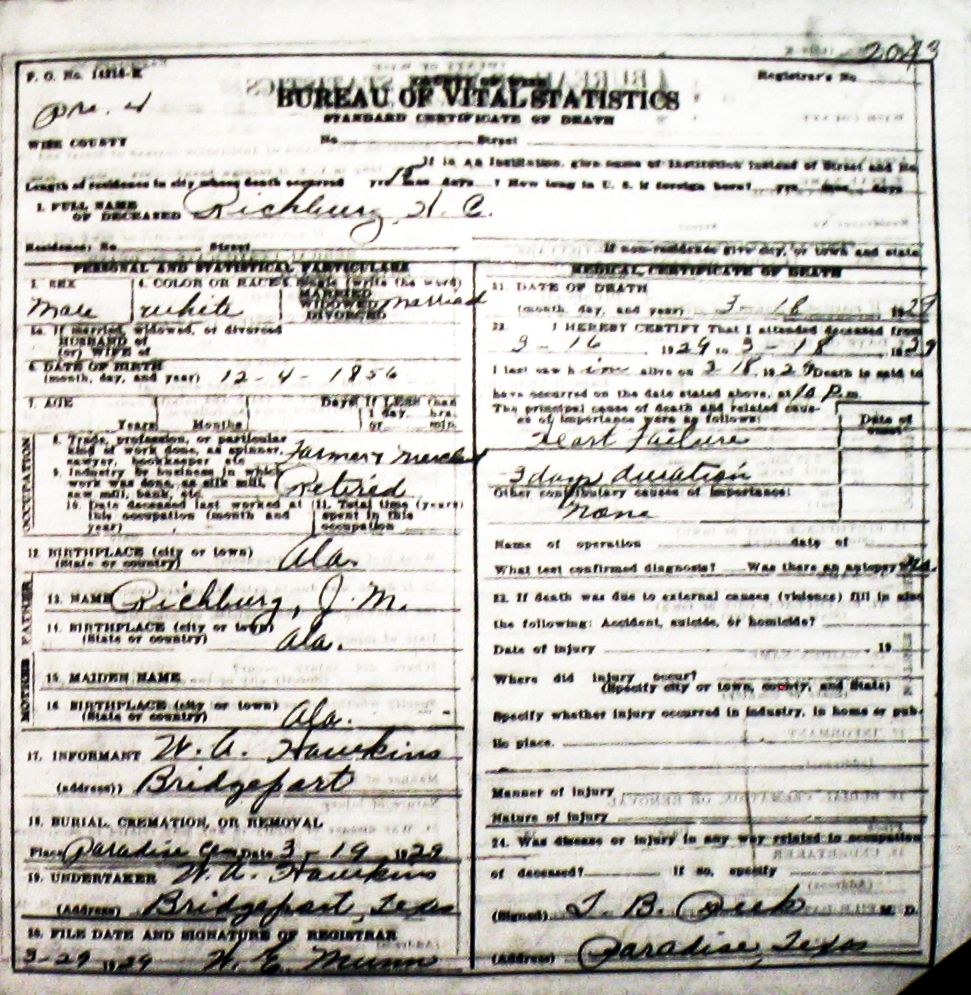 2043
F. O. No. 14218-K
Registrar's No
COUNTY OF WISE
BUREAU OF VITAL STATISTICS
STANDARD CERTIFICATE OF DEATH
Pre. 4
WISE COUNTY No. Street
If in An Institution, give name of Institution instead of Street and No.
Length of residence in city where death occurred yrs mos days ? How long in U. S. if foreign born? yrs. mos. days
1. FULL NAME OF DECEASED Richburg, C.
Residence: No Street If non-residence give day, or town and state
PERSONAL AND STATISTICAL PARTICULARS
3. SEX Male
4. COLOR OR RACE White
5. Single (write the word) MARRIED WIDOWED DIVORCED Married
5a. If married, widowed, or divorced
HUSBAND of
(or) WIFE of
6. DATE OF BIRTH
(month, day, and year) 12-4-1856
7. AGE Years Months Days If LESS than 1 day, hrs. or min.
OCCUPATION
8. Trade, profession, or particular
kind of work done, as spinner,
sawyer, bookkeeper etc Farmer & Merchant
9. Industry by business in which
work was done, as silk mill,
saw mill, bank, etc. Retired
10. Date deceased last worked at
this occupation (month and
year)
11. Total time (years)
spent in this
occupation
12. BIRTHPLACE (city or town)
(State or country) Ala.
FATHER
13. NAME Richburg, J. M.
14. BIRTHPLACE (city or town)
(State or country) Ala.
MOTHER
15. MAIDEN NAME
16. BIRTHPLACE (city or town)
(State or country) Ala.
17. INFORMANT W. A. Hawkins
(address) Bridgeport
18. BURIAL, CREMATION, OR REMOVAL
Place Paradise Cem Date 3-19 1929
19. UNDERTAKER W. A. Hawkins
(Address) Bridgeport, Texas
20. FILE DATE AND SIGNATURE OF REGISTRAR
3-29 1929 W. E. Munn
MEDICAL CERTIFICATE OF DEATH
21. DATE OF DEATH
(month, day, and year) 3-18 1929
22. I HEREBY CERTIFY That I attended deceased from
3-16, 1929 to 3-18 1929
I last saw him alive on 3 18, 1929 Death is said to
have occurred on the date stated above, at 10 P.m.
The principal cause of death and related cau-
ses of importance were as follows: Date of onset
Heart Failure
3 days duration
Other contributary causes of importance:
None
Name of operation date of
What test confirmed diagnosis? Was there an autopsy No
23. If death was due to external causes (violence) fill in also
the following: Accident, suicide, or homicide?
Date of injury 19
Where did injury occur?
(Specify city or town, county, and State)
Specify whether injury occurred in industry, in home or pub-
lic place.
Manner of injury
Nature of injury
24. Was disease or injury in any way related to occupation
of deceased? If so, specify
(Signed) T. B. Peek M. D.
(Address) Paradise, Texas